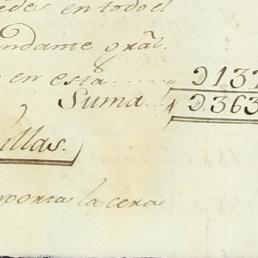 edes en todo el
ndante gral.
en esta ..... D137
Suma.. D363
illas.
mporta la cera